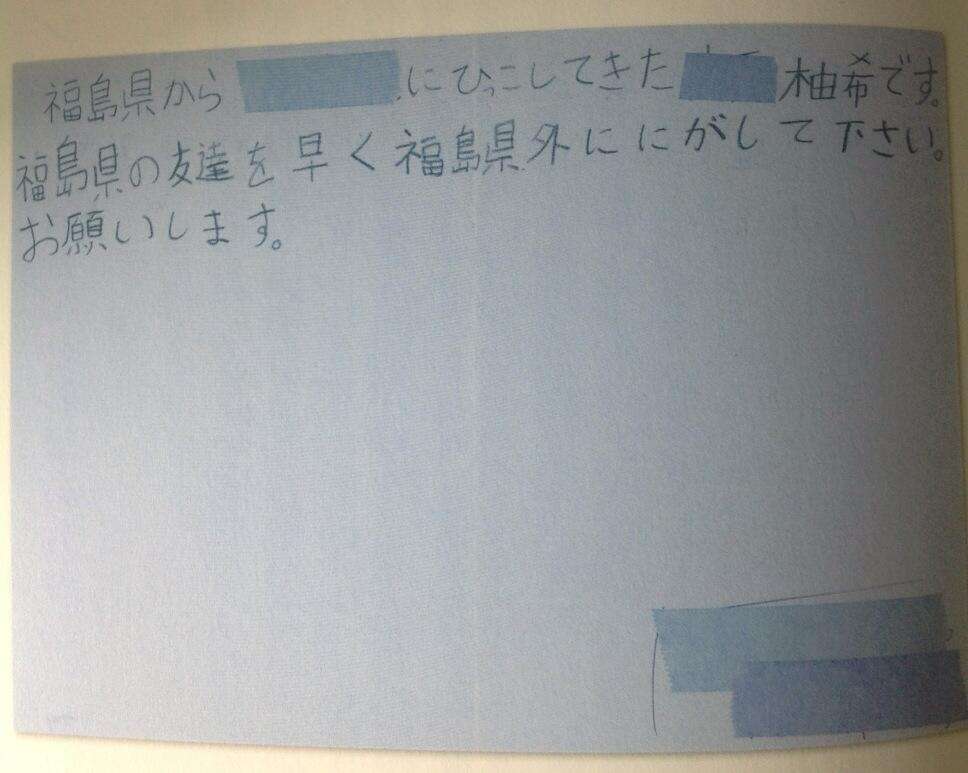 福島県から にひっこしてきた 柚希です。
福島県の友達を早く福島県外ににがして下さい。
お願いします。